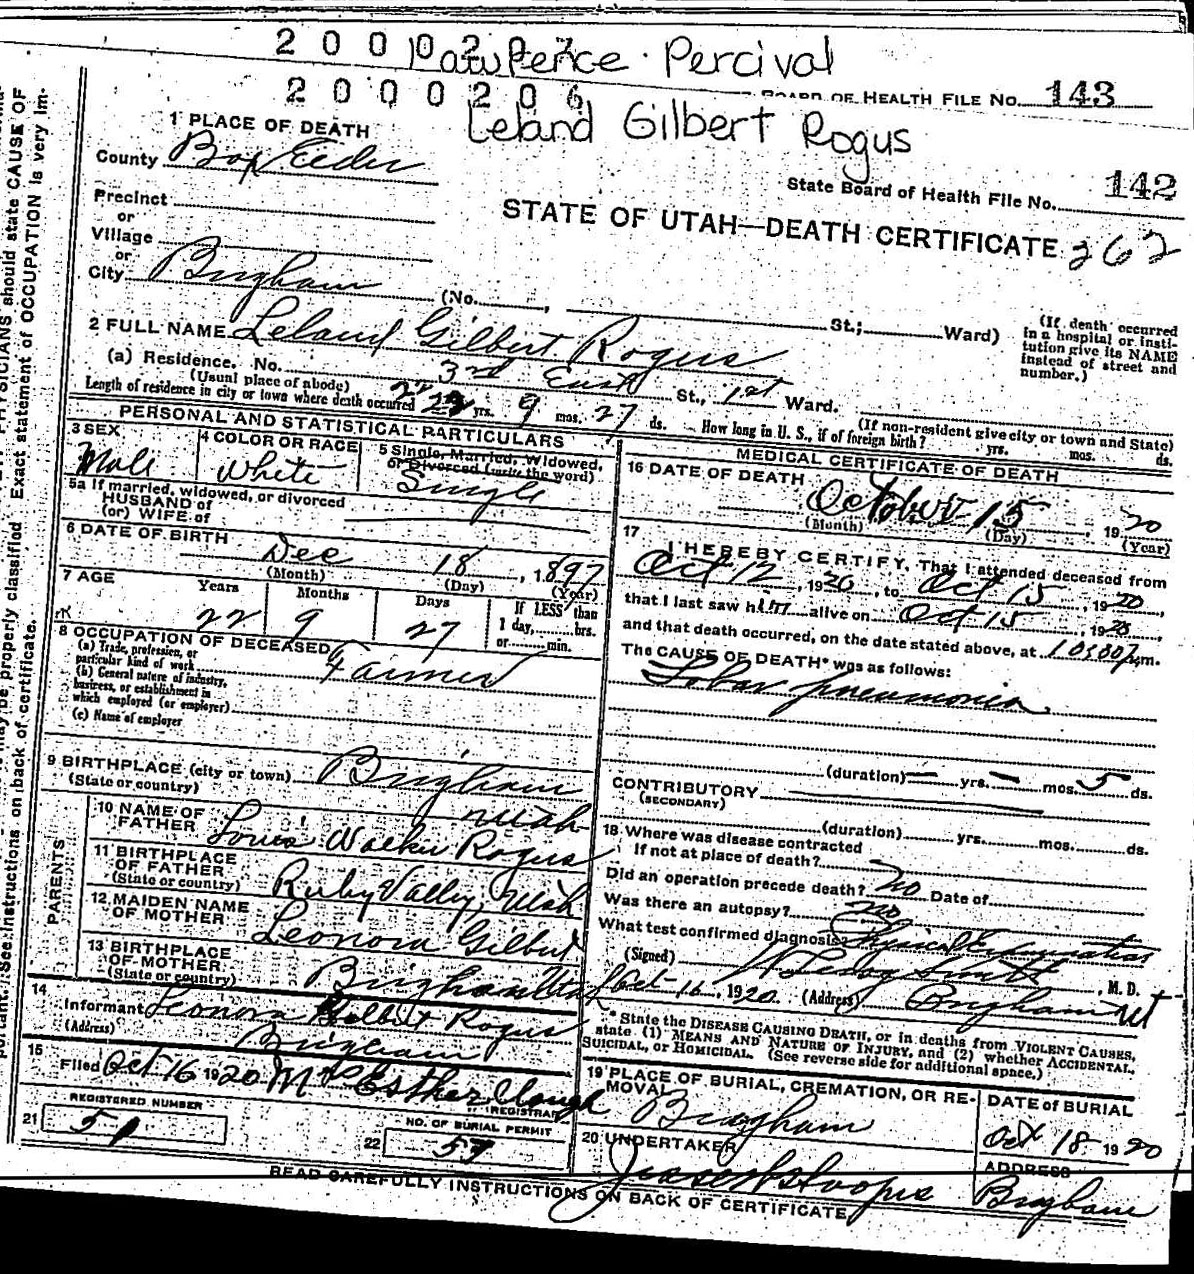 2000207
Lawrence Percival
2000206
BOARD OF HEALTH FILE NO. 143
Leland Gilbert Rogus
1 PLACE OF DEATH
County Box Elder
State Board of Health File No. 142
Precinct
or
STATE OF UTAH—DEATH CERTIFICATE 262
Village
or
City Brigham (No. , St.; Ward)
(If death occurred in a hospital or insti-
tution give its NAME
instead of street and
number.)
2 FULL NAME Leland Gilbert Rogus
(a) Residence. No. 3rd East St., 1st Ward.
(Usual place of abode)
(If non-resident give city or town and State)
Length of residence in city or town where death occurred 22 yrs. 9 mos. 27 ds. How long in U. S., if of foreign birth? yrs. mos. ds.
PERSONAL AND STATISTICAL PARTICULARS
3 SEX Male
4 COLOR OR RACE White
5 Single, Married, Widowed,
or Divorced (write the word)
Single
5a If married, widowed, or divorced
HUSBAND of
(or) WIFE of
6 DATE OF BIRTH
Dec 18, 1897
(Month) (Day) (Year)
7 AGE Years Months Days If LESS than
22 9 27 1 day, hrs.
or min.
8 OCCUPATION OF DECEASED Farmer
(a) Trade, profession, or
particular kind of work
(b) General nature of industry,
business, or establishment in
which employed (or employer)
(c) Name of employer
9 BIRTHPLACE (city or town) Brigham
(State or country) Utah
PARENTS
10 NAME OF
FATHER Louis Walker Rogus
11 BIRTHPLACE
OF FATHER
(State or country) Ruby Valley, Utah
12 MAIDEN NAME
OF MOTHER Leonora Gilbert
13 BIRTHPLACE
OF MOTHER
(State or country) Brigham Utah
14
Informant Leonora Gilbert Rogus
(Address) Brigham
15
Filed Oct 16 1920 Mrs Esther Clough
REGISTRAR
REGISTERED NUMBER
21 51
NO. OF BURIAL PERMIT
22 57
MEDICAL CERTIFICATE OF DEATH
16 DATE OF DEATH
October 15, 1920
(Month) (Day) (Year)
17
I HEREBY CERTIFY, That I attended deceased from
Oct 12, 1920, to Oct 15, 1920,
that I last saw him alive on Oct 15, 1920,
and that death occurred, on the date stated above, at m.
The CAUSE OF DEATH* was as follows:
Lobar pneumonia
(duration) — yrs. — mos. 5 ds.
CONTRIBUTORY
(SECONDARY)
(duration) yrs. mos. ds.
18 Where was disease contracted
If not at place of death?
Did an operation precede death? no Date of
Was there an autopsy? no
What test confirmed diagnosis? Physical Examination
(Signed) , M. D.
Oct 16, 1920. (Address) Brigham Ut
* State the DISEASE CAUSING DEATH, or in deaths from VIOLENT CAUSES,
state (1) MEANS AND NATURE OF INJURY, and (2) whether ACCIDENTAL,
SUICIDAL, or HOMICIDAL. (See reverse side for additional space.)
19 PLACE OF BURIAL, CREMATION, OR RE-
MOVAL Brigham
DATE of BURIAL
Oct 18 1920
20 UNDERTAKER
ADDRESS
Brigham
READ CAREFULLY INSTRUCTIONS ON BACK OF CERTIFICATE
PHYSICIANS should state CAUSE OF
Exact statement of OCCUPATION is very im-
may be properly classified.
portant. (See instructions on back of certificate.